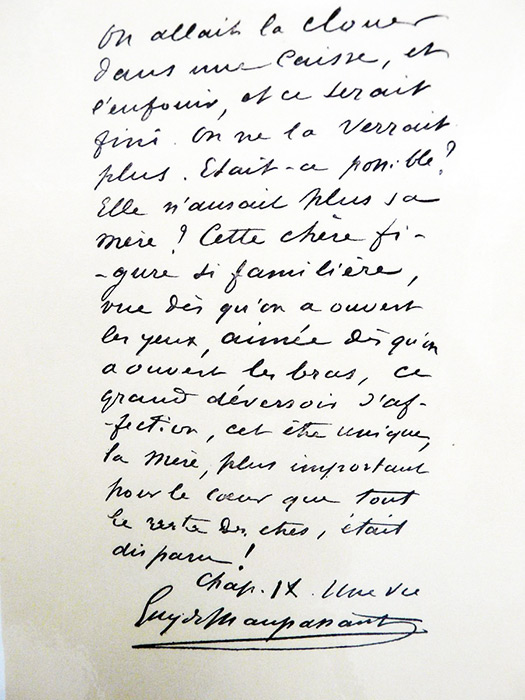 On allait la clouer
dans une caisse, et
l'enfouir, et ce serait
fini. On ne la verrait
plus. Etait-ce possible?
Elle n'aurait plus sa
mère? Cette chère fi-
-gure si familière,
vue dès qu'on a ouvert
les yeux, aimée dès qu'on
a ouvert les bras, ce
grand déversoir d'af-
-fection, cet être unique,
la mère, plus important
pour le cœur que tout
le reste des êtres, était
disparu!
Chap. IX. Une vie
Guy de Maupassant